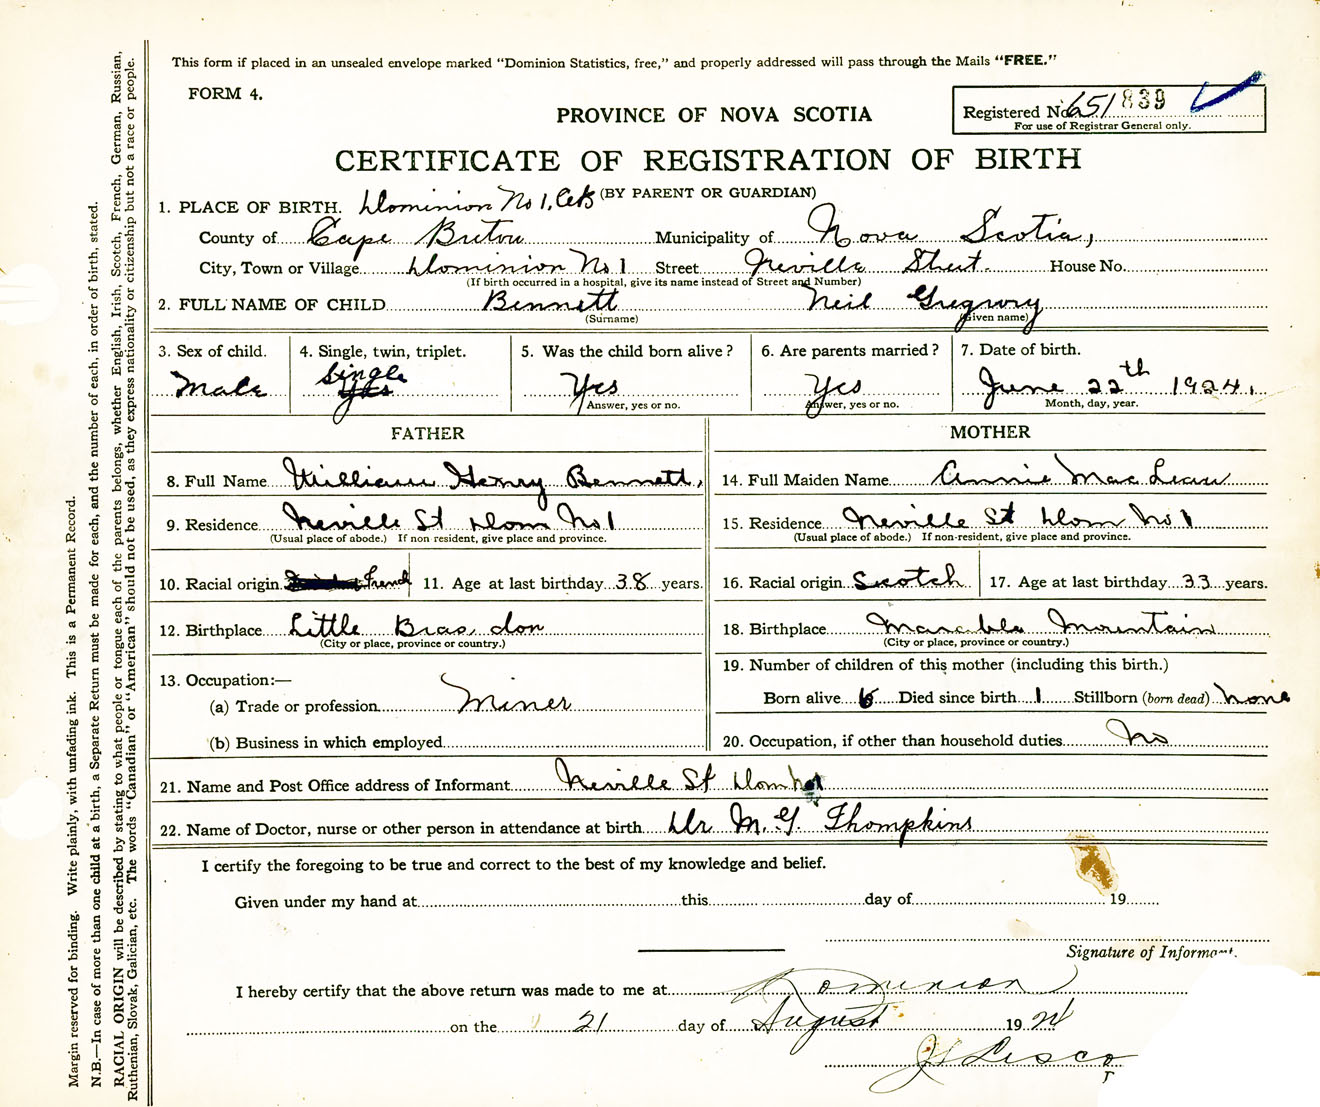 This form if placed in an unsealed envelope marked "Dominion Statistics, free," and properly addressed will pass through the Mails "FREE."
FORM 4.
Registered No. 651 839
For use of Registrar General only.
PROVINCE OF NOVA SCOTIA
CERTIFICATE OF REGISTRATION OF BIRTH
(BY PARENT OR GUARDIAN)
1. PLACE OF BIRTH. Dominion No 1, C.B
County of Cape Breton Municipality of Nova Scotia,
City, Town or Village Dominion No 1 Street Neville Street. House No.
(If birth occurred in a hospital, give its name instead of Street and Number)
2. FULL NAME OF CHILD Bennett Neil Gregrory
(Surname) (Given name)
3. Sex of child. 4. Single, twin, triplet. 5. Was the child born alive? 6. Are parents married? 7. Date of birth.
Male Single Yes Yes Yes June 22th 1924.
Answer, yes or no. Answer, yes or no. Month, day, year.
FATHER
8. Full Name William Henry Bennett,
9. Residence Neville St Dom No 1
(Usual place of abode.) If non-resident, give place and province.
10. Racial origin French 11. Age at last birthday 38 years.
12. Birthplace Little Bras, dor
(City or place, province or country.)
13. Occupation:—
(a) Trade or profession Miner
(b) Business in which employed
MOTHER
14. Full Maiden Name Annie Mac Lean
15. Residence Neville St Dom No 1
(Usual place of abode.) If non-resident, give place and province.
16. Racial origin Scotch 17. Age at last birthday 33 years.
18. Birthplace Marable Mountain
(City or place, province or country.)
19. Number of children of this mother (including this birth.)
Born alive 6 Died since birth 1 Stillborn (born dead) none
20. Occupation, if other than household duties No
21. Name and Post Office address of Informant Neville St Dom No 1
22. Name of Doctor, nurse or other person in attendance at birth Dr M. G. Thompkins
I certify the foregoing to be true and correct to the best of my knowledge and belief.
Given under my hand at this day of 19
Signature of Informant.
I hereby certify that the above return was made to me at Dominion
on the 21 day of August 19 24
Lisco
Margin reserved for binding. Write plainly, with unfading ink. This is a Permanent Record.
N.B.—In case of more than one child at a birth, a Separate Return must be made for each, and the number of each, in order of birth, stated.
RACIAL ORIGIN will be described by stating to what people or tongue each of the parents belongs, whether English, Irish, Scotch, French, German, Russian,
Ruthenian, Slovak, Galician, etc. The words "Canadian" or "American" should not be used, as they express nationality or citizenship but not a race or people.